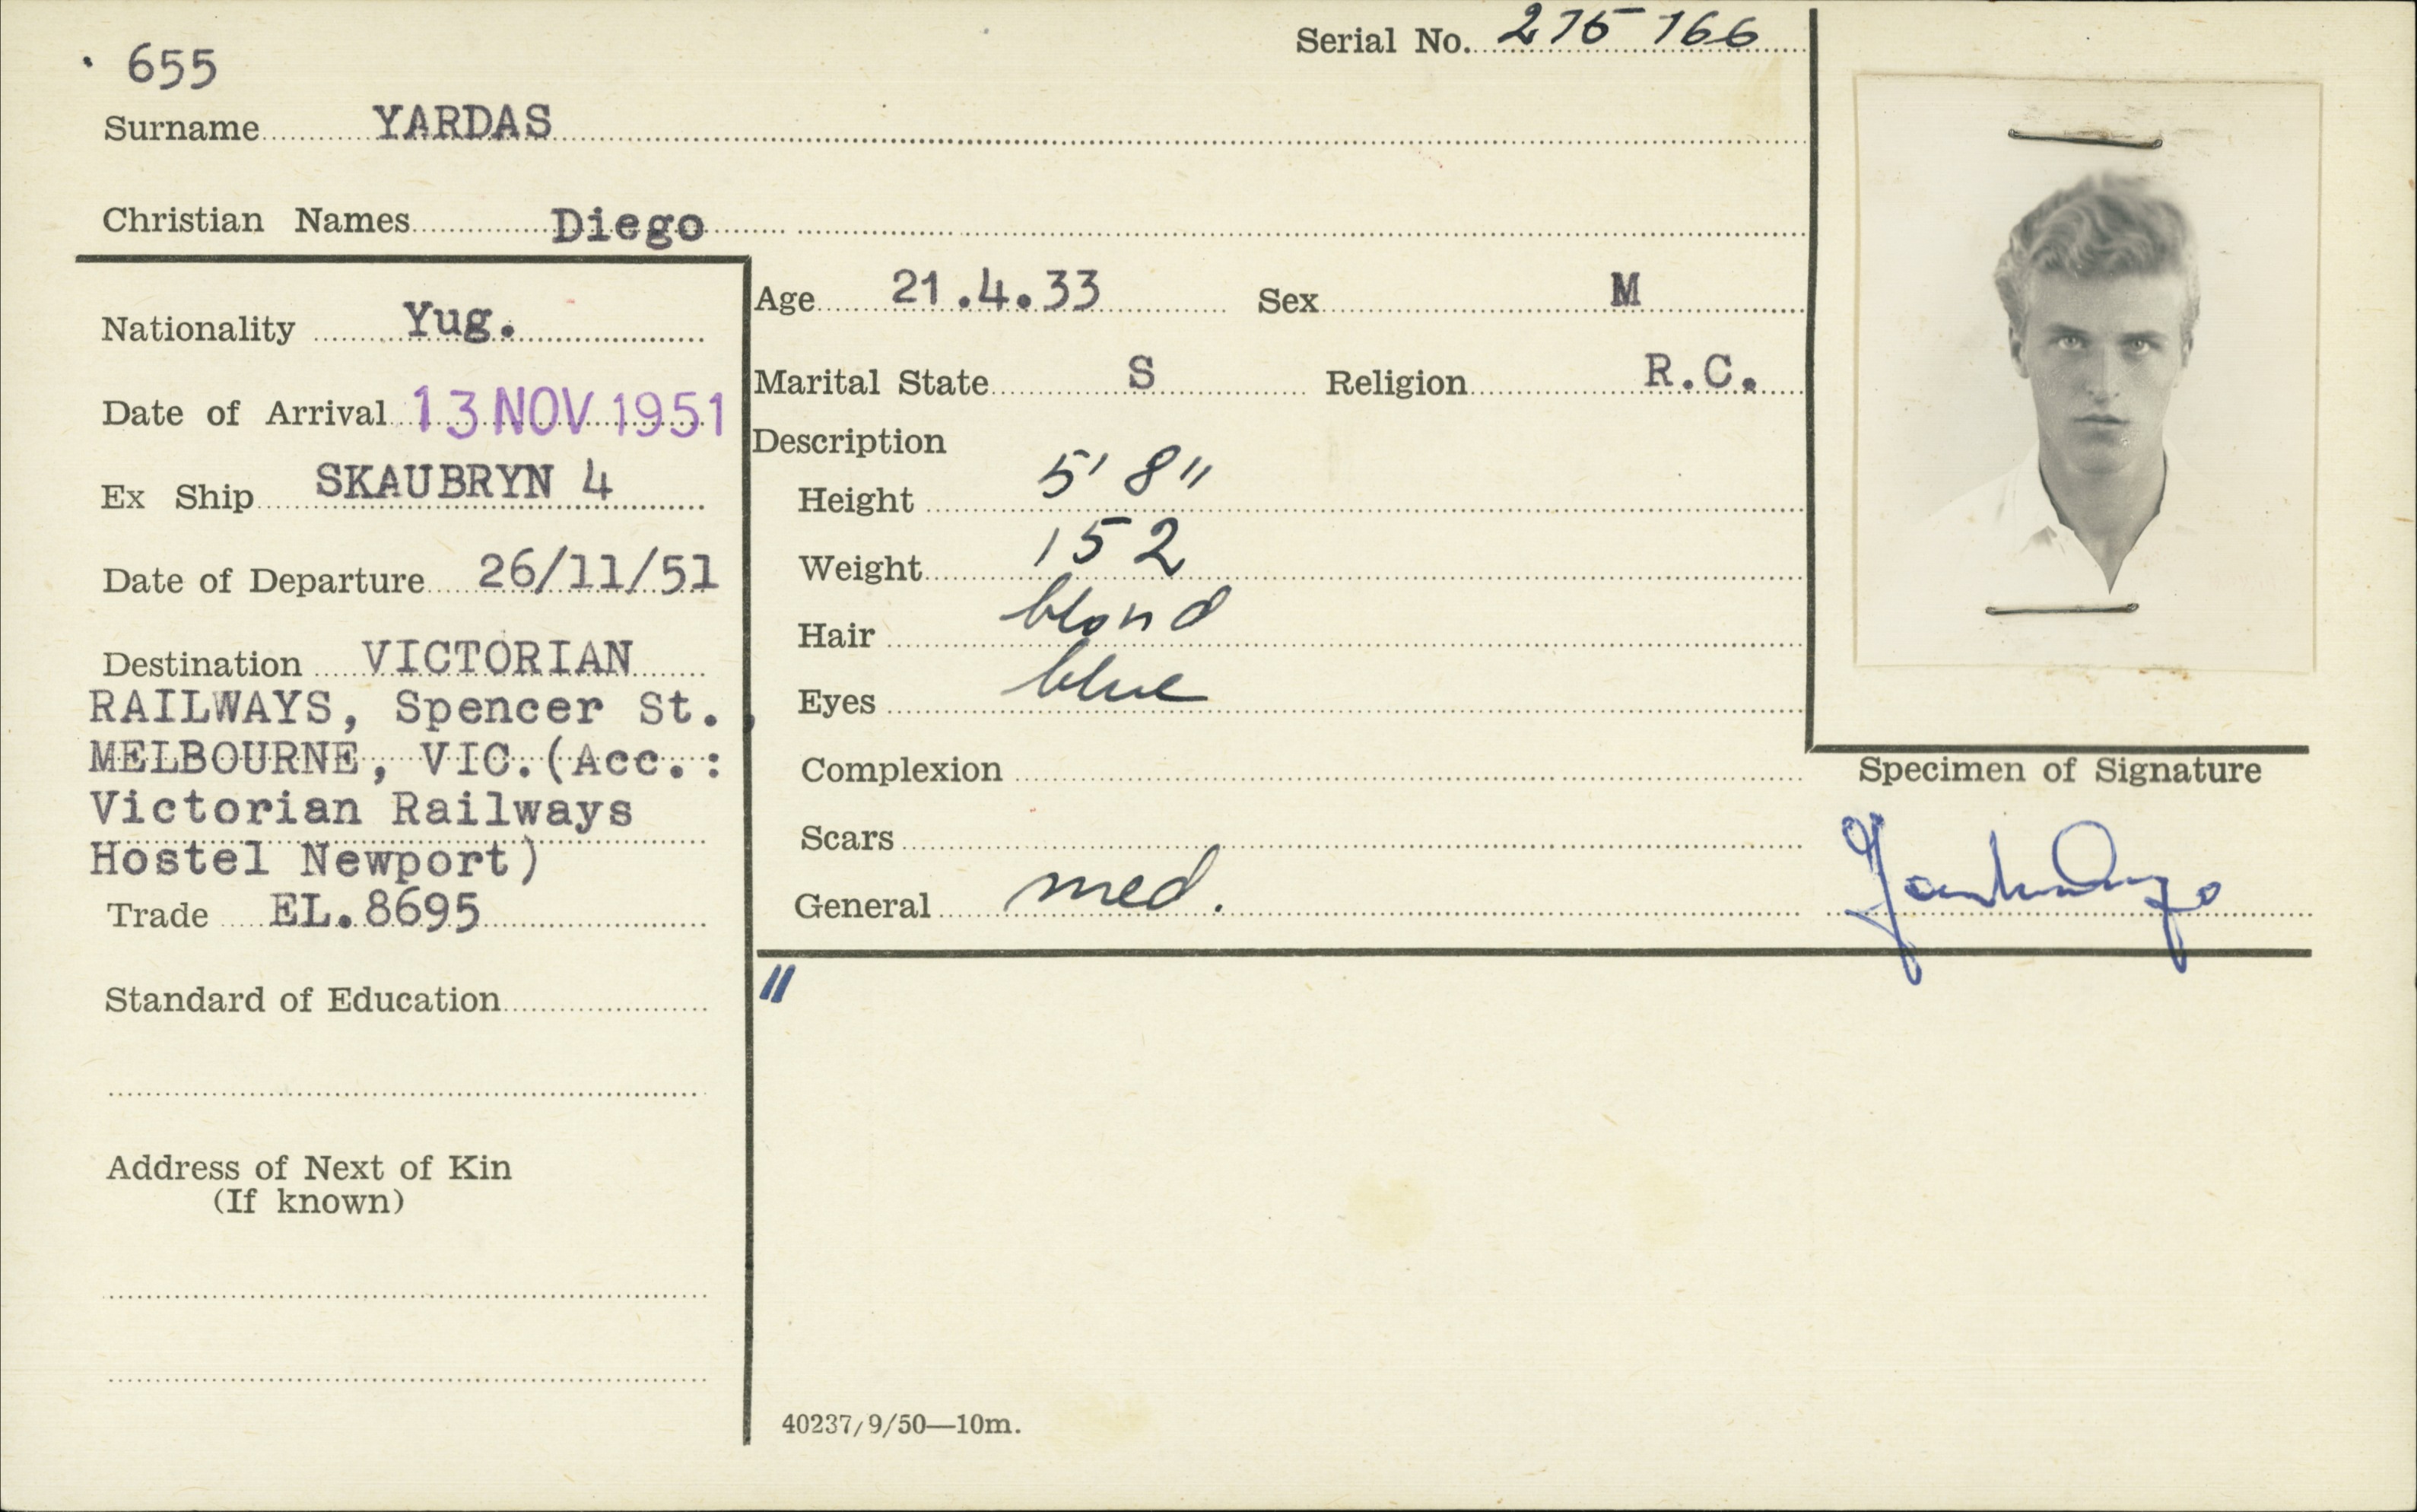 655
Serial No. 275 166
Surname YARDAS
Christian Names Diego
Nationality Yug.
Date of Arrival 13 NOV 1951
Ex Ship SKAUBRYN 4
Date of Departure 26/11/51
Destination VICTORIAN
RAILWAYS, Spencer St.,
MELBOURNE, VIC.(Acc.:
Victorian Railways
Hostel Newport)
Trade EL.8695
Standard of Education
Address of Next of Kin
(If known)
Age 21.4.33 Sex M
Marital State S Religion R.C.
Description
Height 5' 8"
Weight 152
Hair blond
Eyes blue
Complexion
Scars
General med.
Specimen of Signature
40237/9/50—10m.